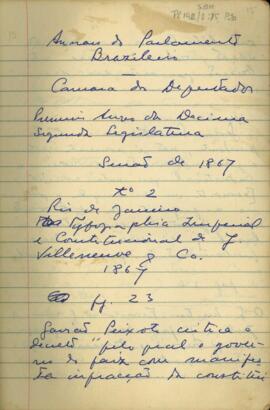 Annaes do Parlamento
Brazileiro
Camara dos Deputados
Primeiro Anno da Decima
Segunda Legislatura
Sessão de 1867
Nº 2
Rio de Janeiro
Typographia Imperial
e Constitucional de J.
Villeneuve & Co.
1867
pg. 23
Gavião Peixoto critica o
decreto "pelo qual o gover-
no de paiz com manifes-
ta infracção da constitui